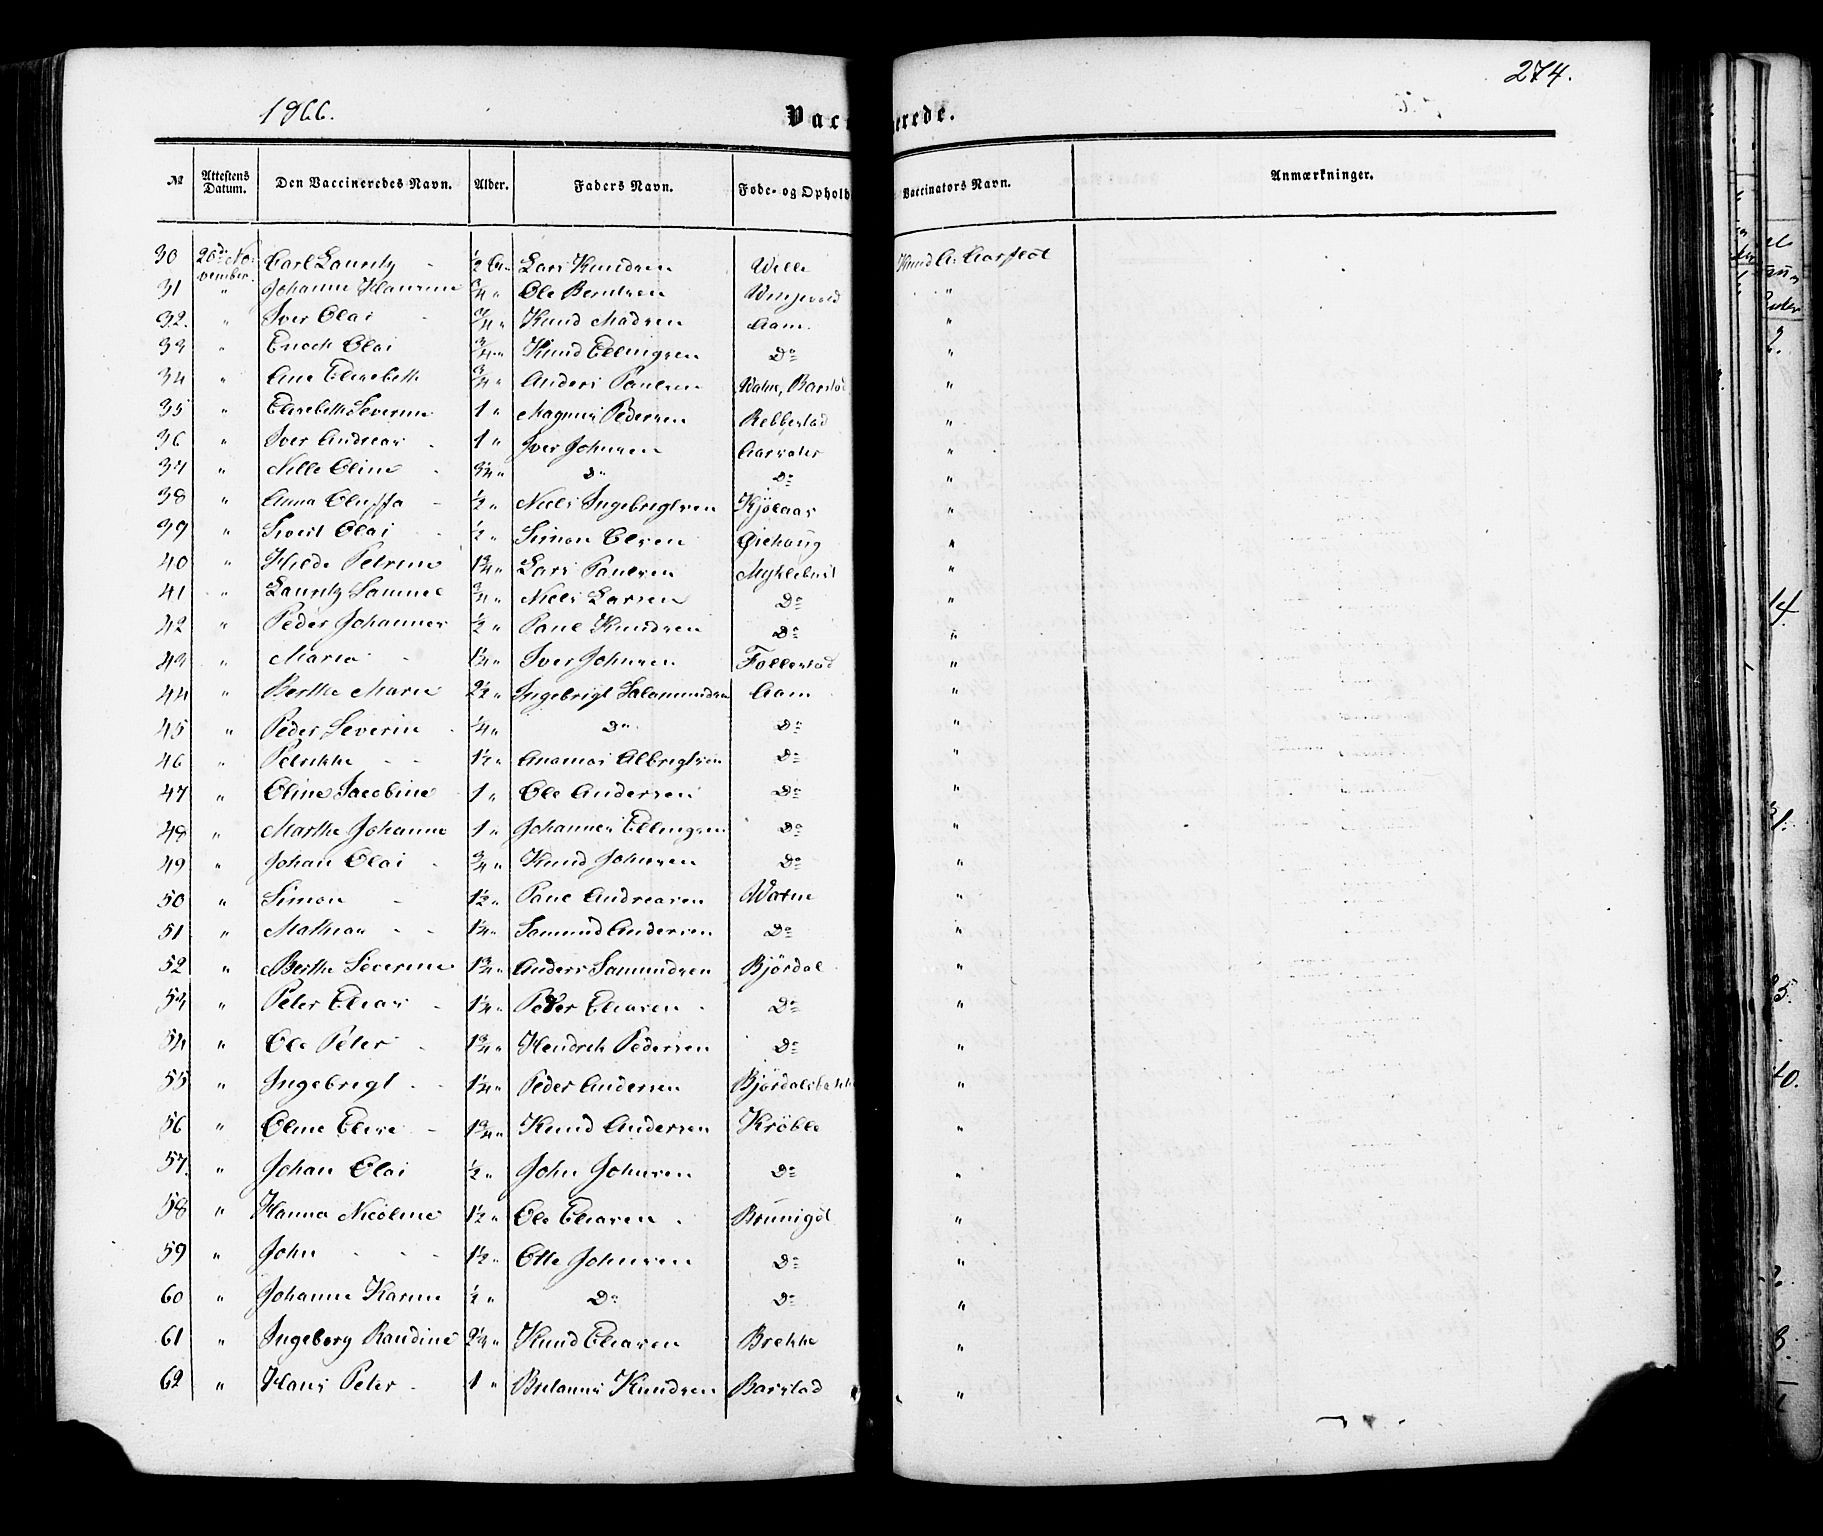 274.
1866.
Vaccinerede.
№ Attestens Datum. Den Vaccineredes Navn. Alder. Faders Navn. Føde- og Ophold Vaccinators Navn. Anmærkninger.
30 26d. November Carl Lauritz - ½ Lars Knudsen Wille Knud A: Aarflot
31 " Johanne Laurine ¾ " Ole Berntsen "
32. " Iver Olai - ¾ " Knud Madsen Aam. "
33 " Enoch Olai ¾ " Knud Ellingsen Do "
34 " Ane Elisebeth ¾ " Anders Paulsen Watne, Barstad "
35 " Elisebeth Severine 1 " Magnus Pedersen Rebbestad "
36 " Iver Andreas - 1 " Iver Johnsen Aarsæter "
37 " Nille Oline - 3¼ " Do Do "
38 " Anna Oluffa - ½ " Niels Ingebrigtsen Kjölaas "
39 " Sivert Olai - ½ " Simon Olsen Gjehaug "
40 " Hilde Petrine 1¾ " Lars Paulsen Myklebust "
41 " Lauritz Samuel ¾ " Niels Larsen Do "
42 " Peder Johannes ½ " Paul Knudsen Do "
43 " Maria - 1¼ " Iver Johnsen Follestad "
44 " Berthe Marie 2½ " Ingebrigt Salamundsen Aam "
45 " Peder Severin - ¼ " Do Do "
46 " Petrikke - - 1½ " Albrigtsen Do "
47 " Oline Jacobine 1 " Ole Andersen Do "
48 " Marthe Johanne 1 " Johannes Ellingsen Do "
49 " Johan Olai - ¾ " Knud Johnsen Do "
50 " Simon - 1½ " Paul Andreasen Watne "
51. " Mathias - - 1¼ " Samund Andersen Do "
52 " Berthe Severine 1¾ " Anders Samundsen Bjørdal "
53 " Peter Elias - 1¼ " Peder Eliasen - Do "
54 " Ole Peter - 1¾ " Hendrik Pedersen Do "
55 " Ingebrigt - - 1¼ " Peder Andersen Bjørdalsbakke "
56 " Oline Elise - 1¾ " Knud Andersen Krøble "
57. " Johan Olai ½ " John Johnsen Do "
58 " Hanna Nicoline 1½ " Ole Eliasen - "
59 " John - - - 1½ " Otte Johnsen Do "
60 " Johanne Karine ½ " Do Do "
61 " Ingeborg Randine 2¼ " Knud Eliasen Brekke "
62 " Hans Peter - 1 " Knudsen Barstad "